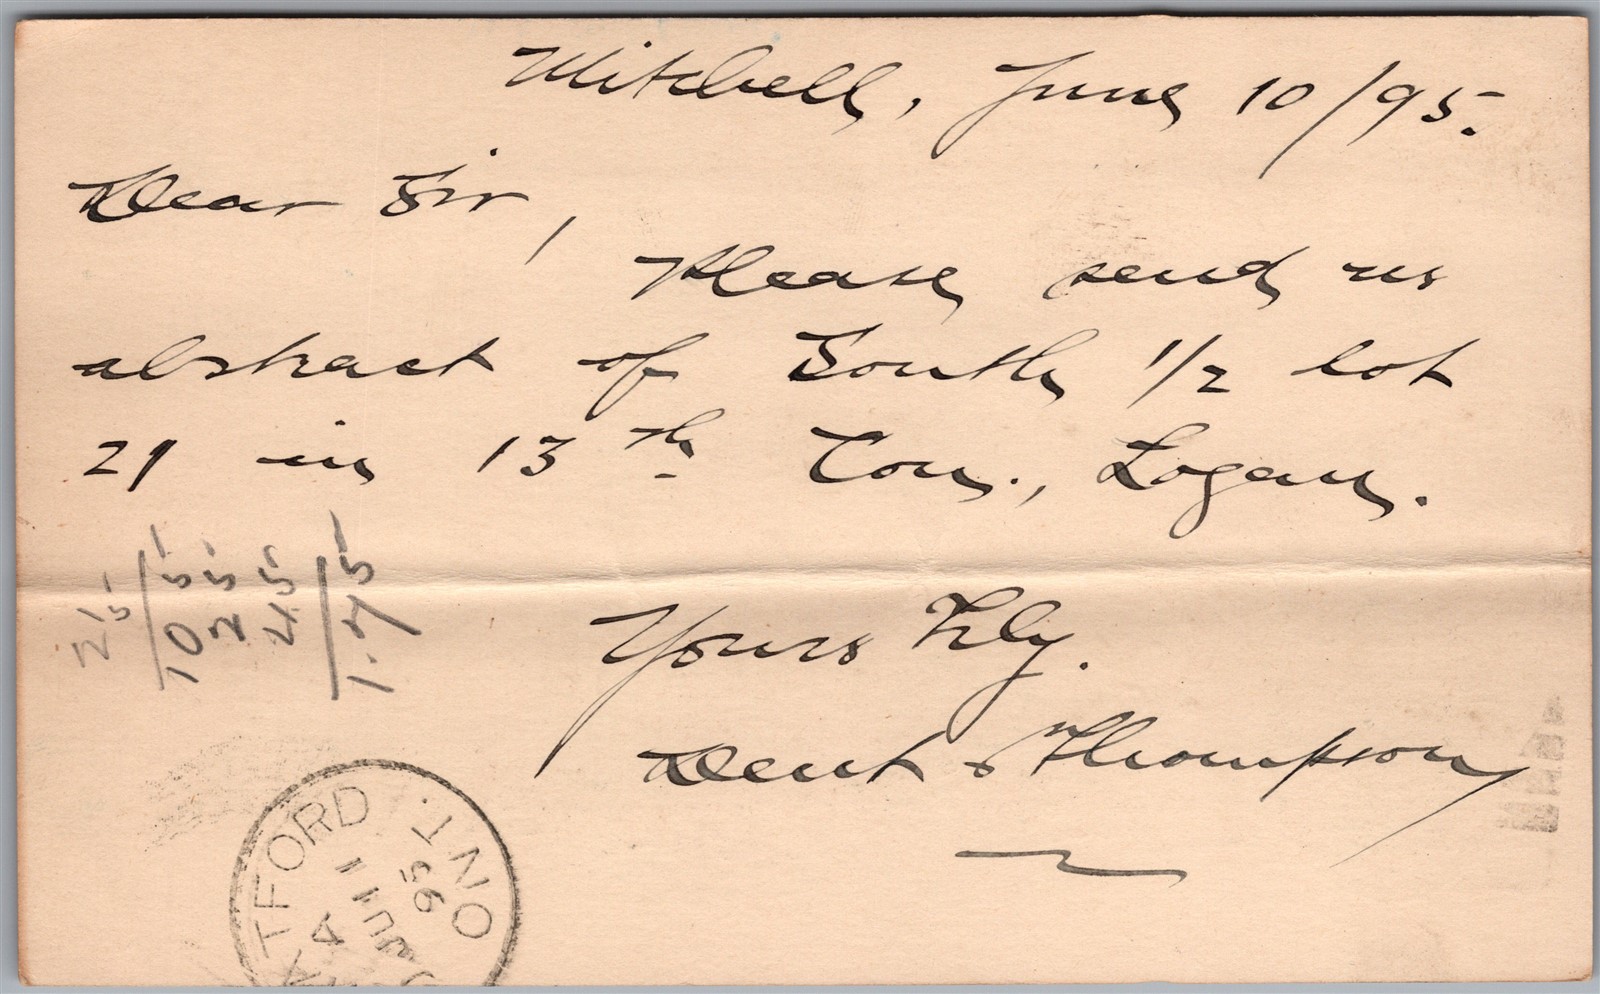 Mitchell, June 10/95.
Dear Sir,
Please send us
abstract of South 1/2 lot
21 in 13th Con., Logan.
Yours Trly.
Dent & Thompson
25
1055
25
45
1.75
ATFORD ONT.
A
JU 11
95